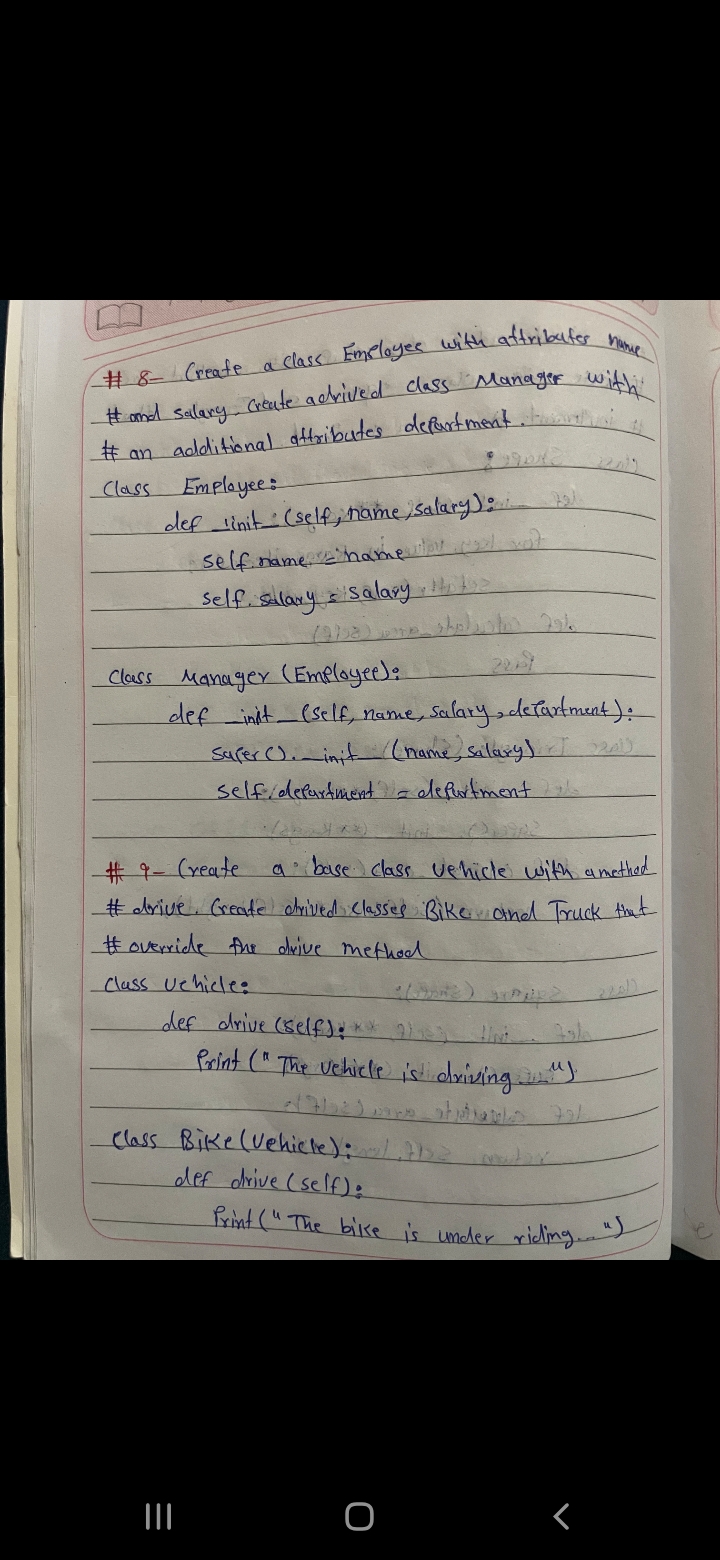 # 8- Create a class Employee with attributes name
# and salary. Create a drived class Manager with
# an additional attributes department.
Class Employee:
def __init__(self, name, salary):
self.name = name
self.salary = salary
Class Manager (Employee):
def __init__(self, name, salary, department):
super().__init__(name, salary)
self.department = department
# 9- Create a base class vehicle with a method
# drive. Create drived classes Bike and Truck that
# override the drive method
Class vehicle:
def drive (self):
Print (" The vehicle is driving...")
Class Bike (vehicle):
def drive (self):
Print (" The bike is under riding...")